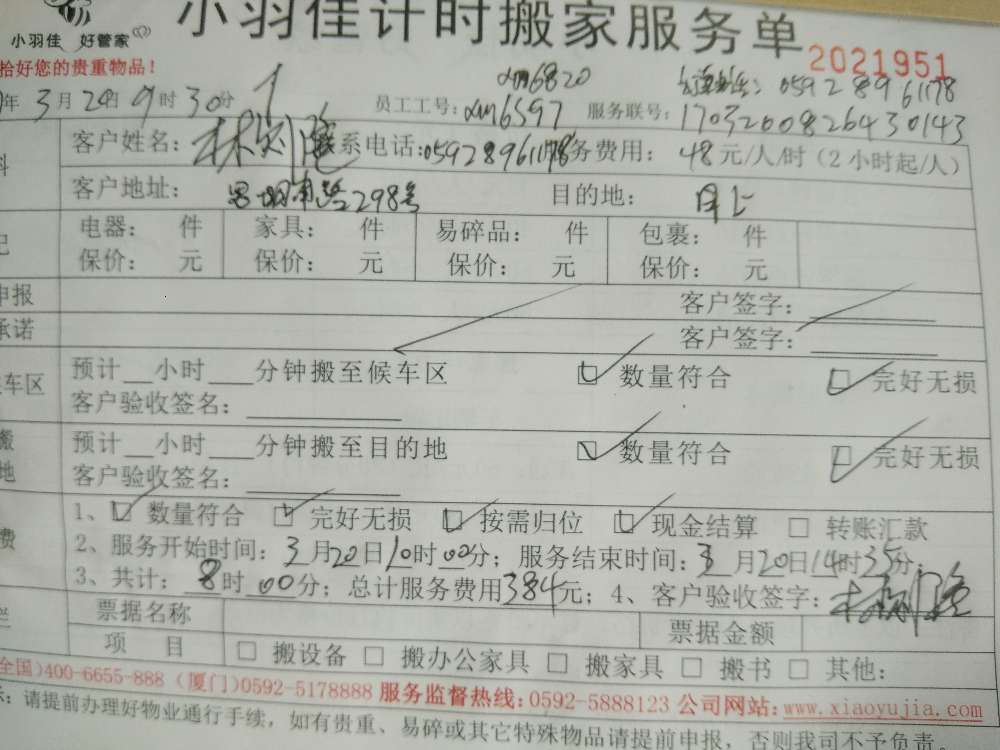 小羽佳 好管家
小羽佳计时搬家服务单
拾好您的贵重物品！
2021951
年3月20日9时30分
xm6820
员工工号：xm6597
0592 8961178
服务联号：1703200826430143
客户姓名：林 联系电话：05928961178 服务费用：48元/人/时（2小时起/人）
客户地址：思明南路298号 目的地：
电器： 件 家具： 件 易碎品： 件 包裹： 件
保价： 元 保价： 元 保价： 元 保价： 元
申报 客户签字：
承诺 客户签字：
车区 预计__小时___分钟搬至候车区 数量符合 完好无损
客户验收签名：
搬 预计__小时___分钟搬至目的地 数量符合 完好无损
地 客户验收签名：
费 1、 数量符合 完好无损 按需归位 现金结算 转账汇款
2、服务开始时间：3月20日10时00分；服务结束时间：3月20日14时35分
3、共计：8时00分；总计服务费用384元；4、客户验收签字：
栏 票据名称 票据金额
项 目 搬设备 搬办公家具 搬家具 搬书 其他：
全国)400-6655-888（厦门)0592-5178888 服务监督热线：0592-5888123 公司网站：www.xiaoyujia.com
示：请提前办理好物业通行手续，如有贵重、易碎或其它特殊物品请提前申报，否则我司不予负责。